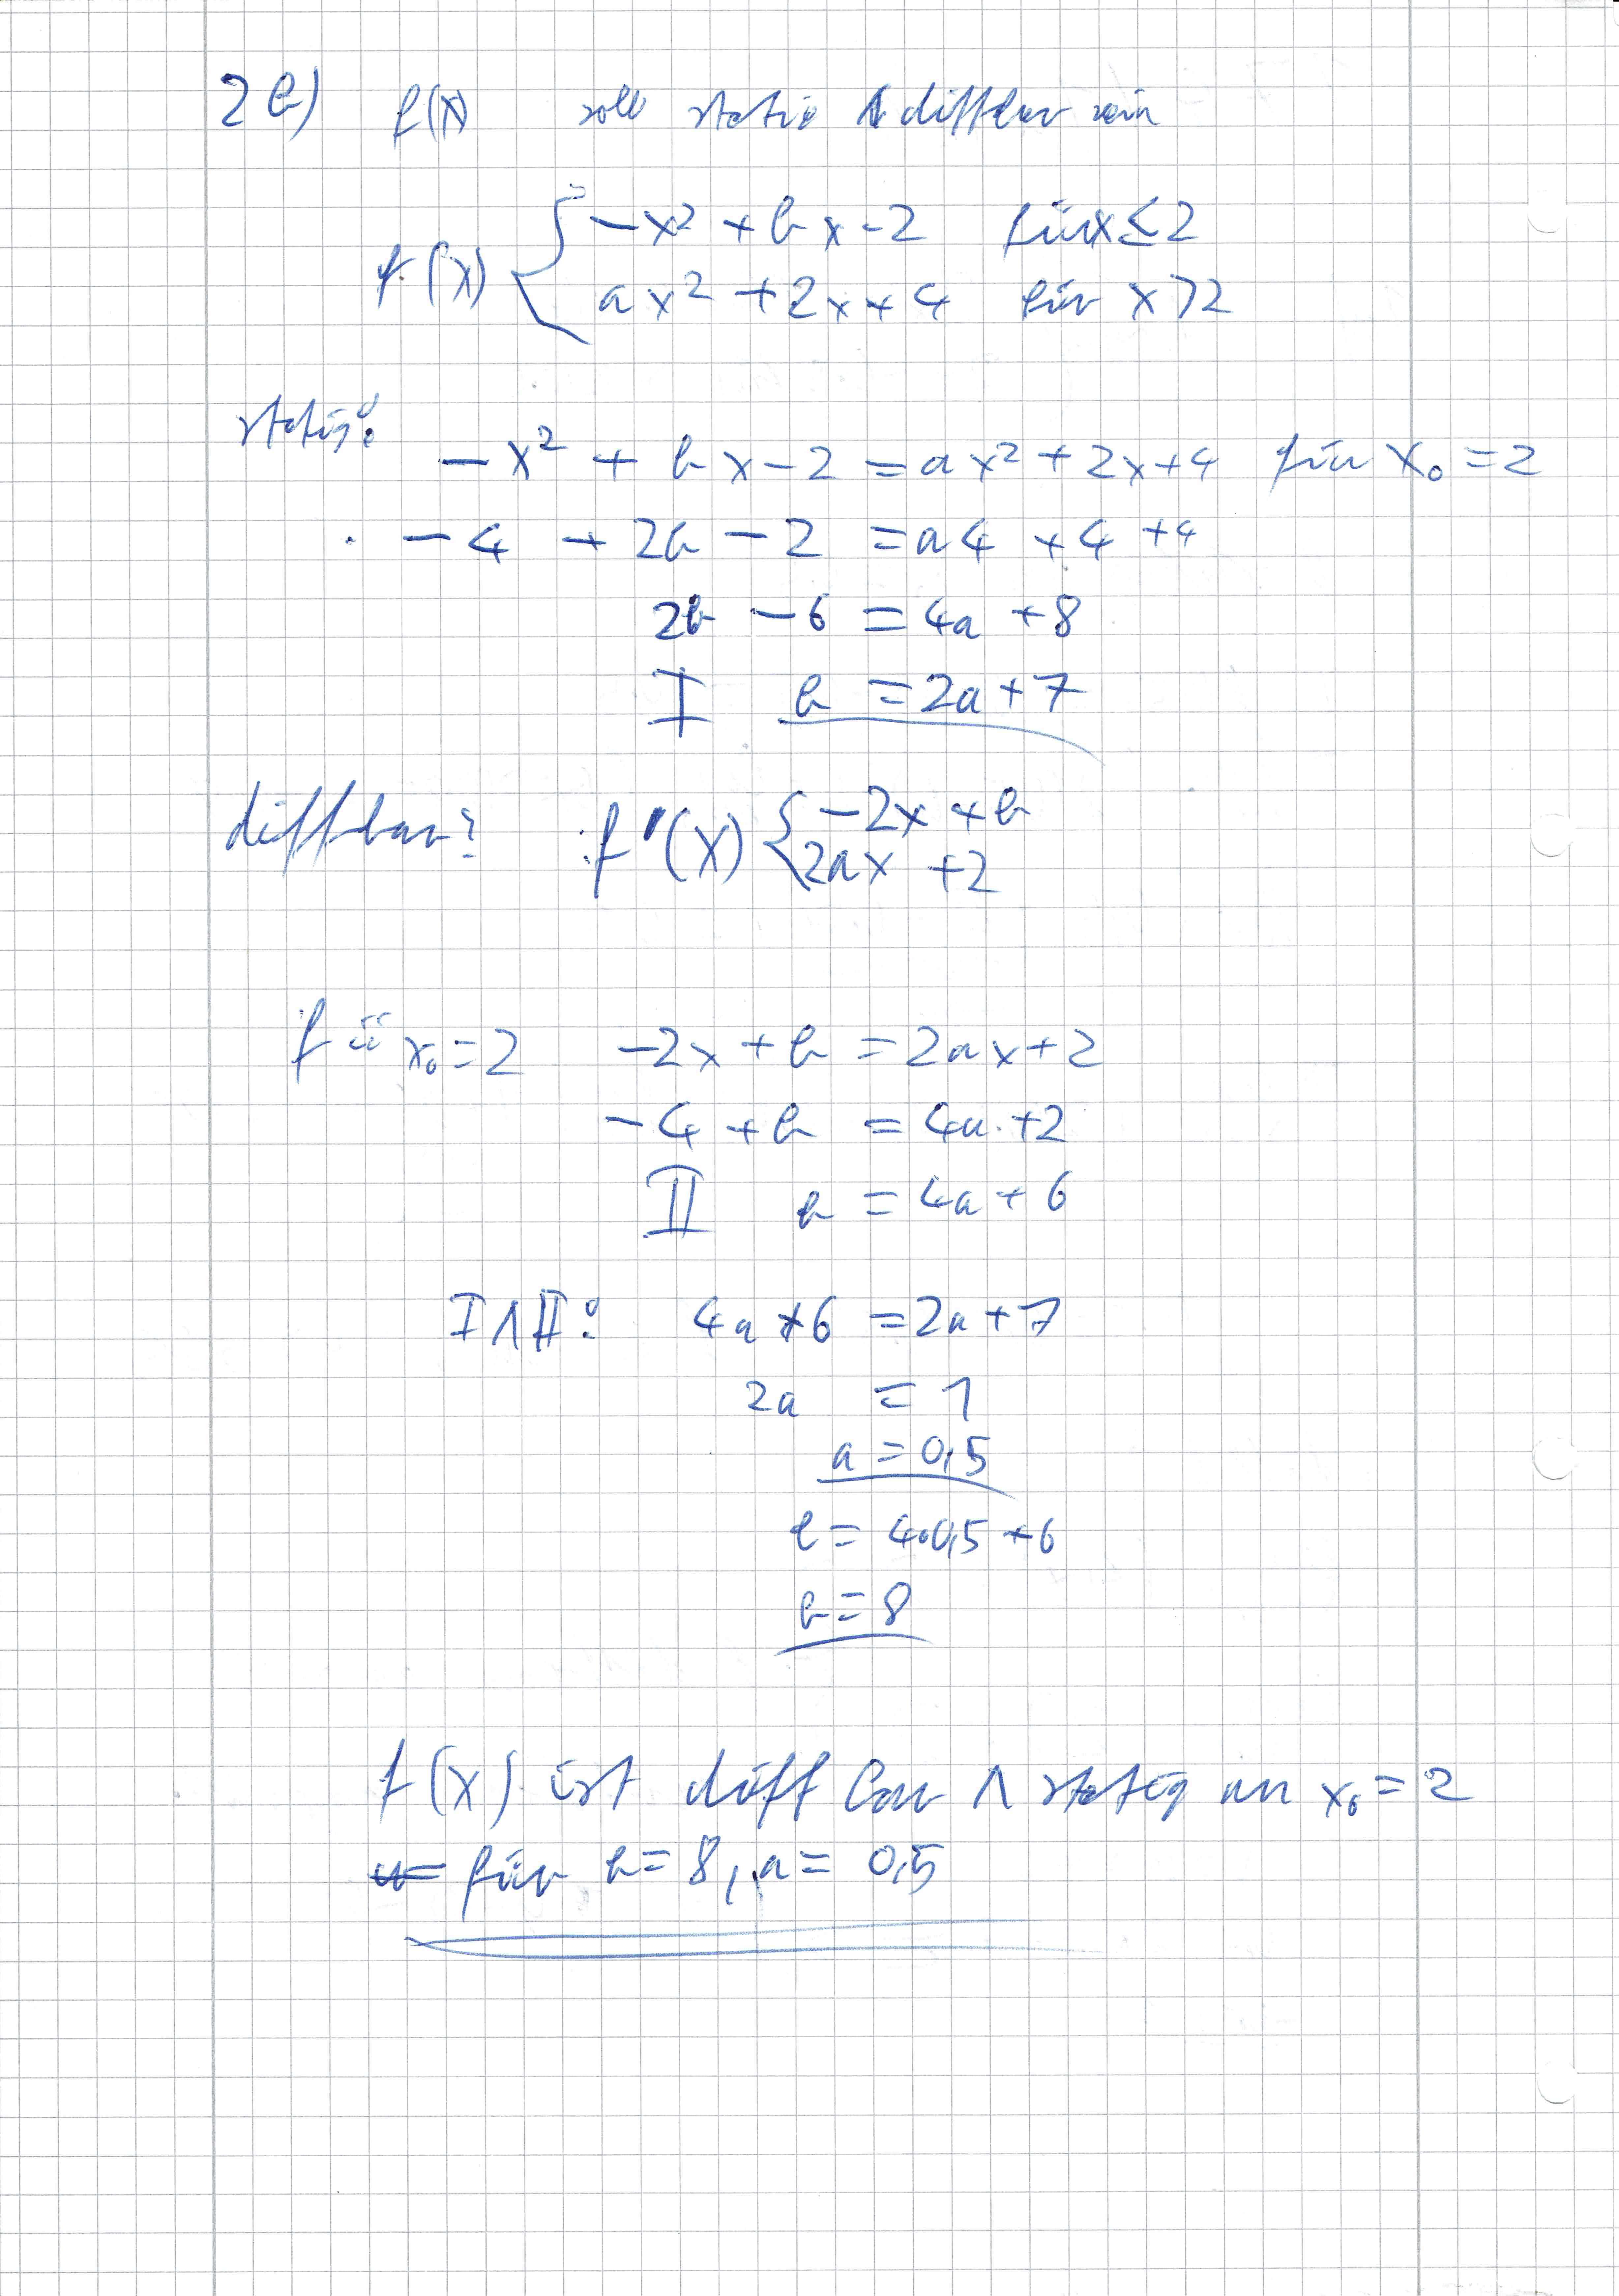 2b) f(x) soll stetig ∧ diffbar sein
f(x) { -x² + bx - 2 für x ≤ 2
ax² + 2x + 4 für x > 2
stetig:
-x² + bx - 2 = ax² + 2x + 4 für x₀ = 2
-4 + 2b - 2 = a4 + 4 + 4
2b - 6 = 4a + 8
I b = 2a + 7
diffbar: f'(x) { -2x + b
2ax + 2
fü x₀ = 2 -2x + b = 2ax + 2
-4 + b = 4a + 2
II b = 4a + 6
I ∧ II: 4a + 6 = 2a + 7
2a = 1
a = 0,5
b = 4·0,5 + 6
b = 8
f(x) ist diffbar ∧ stetig an x₀ = 2
für b = 8, a = 0,5